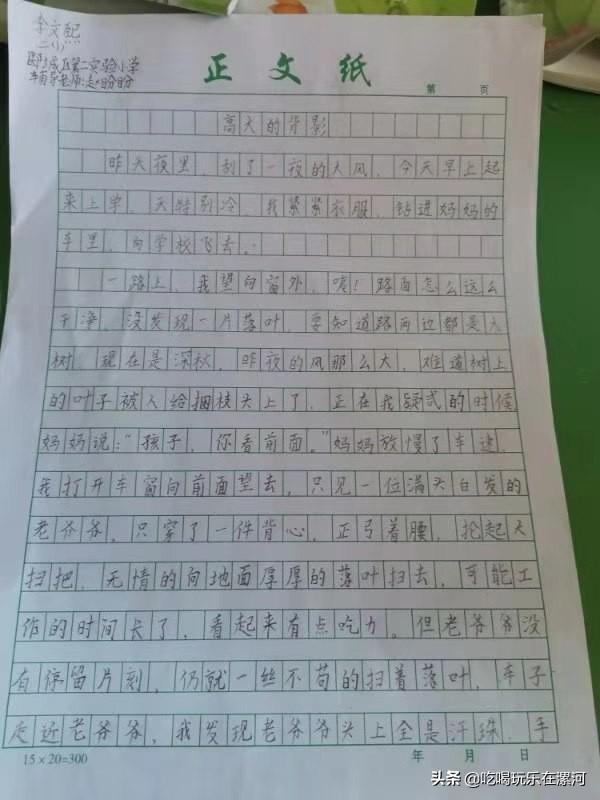 李文熙
二(1)
郾城区第二实验小学
辅导老师:赵盼盼
正文纸
第 页
高大的背影
昨天夜里，刮了一夜的大风，今天早上起
来上学，天特别冷，我紧紧衣服，钻进妈妈的
车里，向学校飞去。
一路上，我望向窗外，咦！路面怎么这么
干净，没发现一片落叶，要知道路两边都是大
树，现在是深秋，昨夜的风那么大，难道树上
的叶子被人给捆枝头上了，正在我疑惑的时候
妈妈说："孩子，你看前面。"妈妈放慢了车速，
我打开车窗向前面望去，只见一位满头白发的
老爷爷，只穿了一件背心，正弓着腰，抡起大
扫把，无情的向地面厚厚的落叶扫去，可能工
作的时间长了，看起来有点吃力。但老爷爷没
有停留片刻，仍就一丝不苟的扫着落叶，车子
走近老爷爷，我发现老爷爷头上全是汗珠，手
15×20=300
年 月 日
头条 @吃喝玩乐在漯河